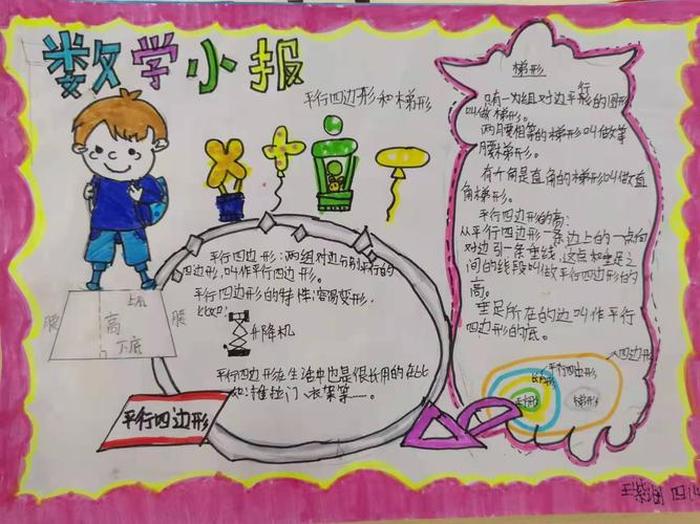 数学小报
平行四边形和梯形
平行四边形：两组对边分别平行的
四边形，叫作平行四边形。
平行四边形的特性：容易变形，
比如：
升降机
平行四边形在生活中也是很长用的在比
如：推拉门、衣架等……。
上底
腰 高 腰
下底
平行四边形
梯形
只有一组对边平行的图形
叫做梯形。
两腰相等的梯形叫做等
腰梯形。
有个角是直角的梯形叫做直
角梯形。
平行四边形的高：
从平行四边形一条边上的一点向
对边引一条垂线，这点和垂足之
间的线段叫做平行四边形的
高。
垂足所在的边叫作平行
四边形的底。
四边形
平行四边形
长方形
正方形
梯形